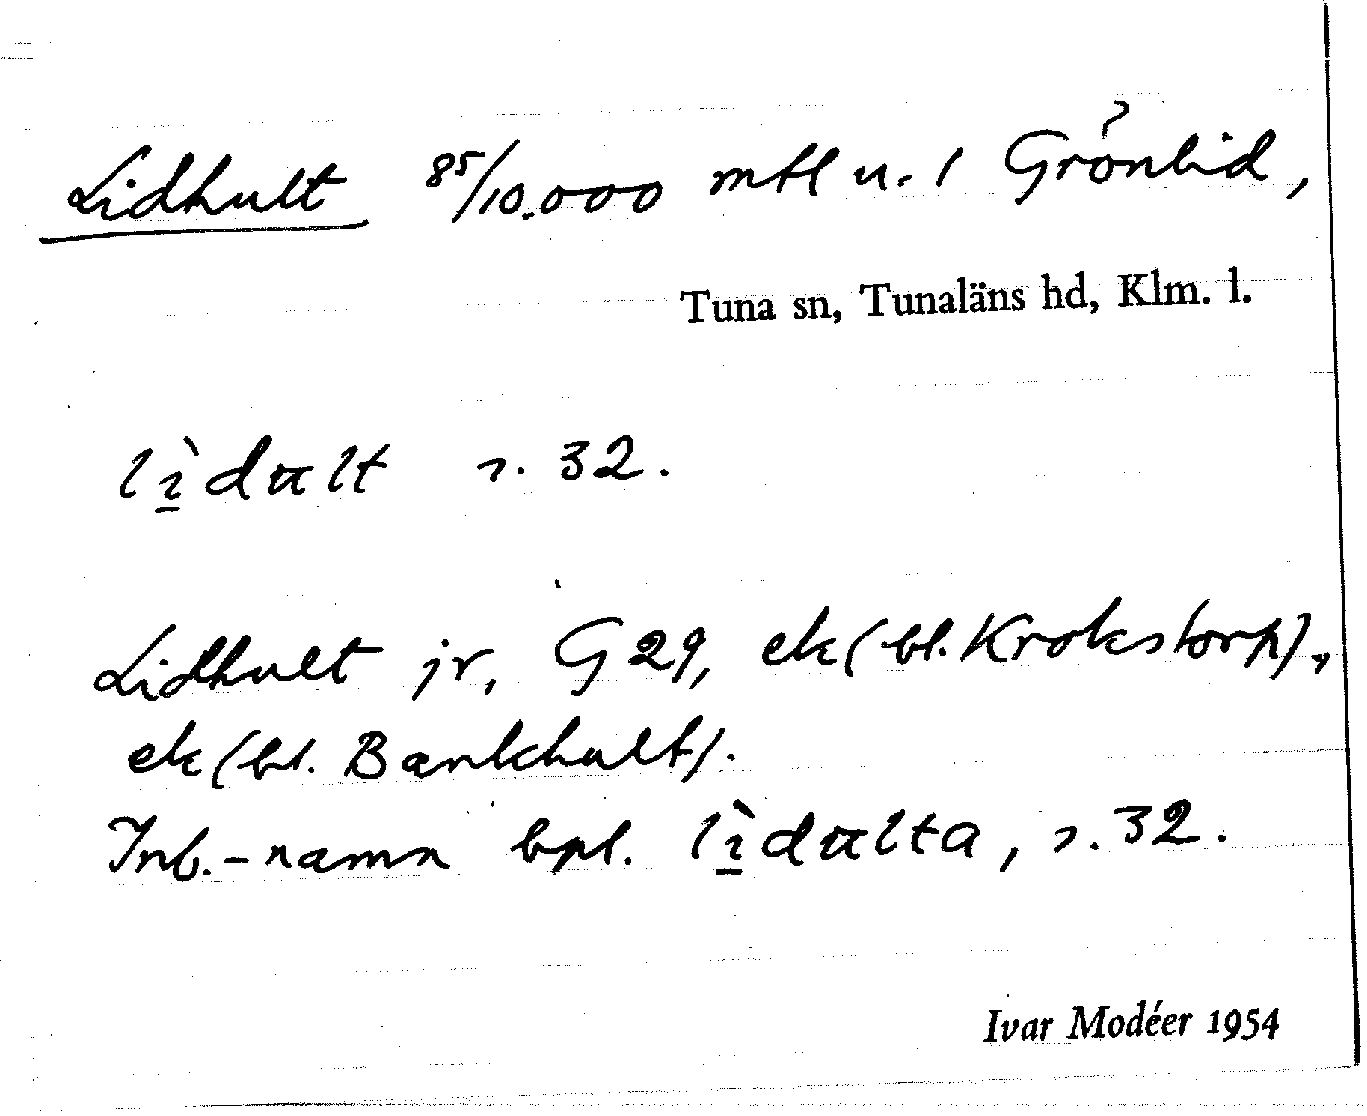 Lidhult 85/10.000 mtl u. 1 Grönlid,
Tuna sn, Tunaläns hd, Klm. l.
lìdult s. 32.
Lidhult jr, G 29, ek (bl. Krokstorp),
ek (bl. Bankhult).
Inb.-namn bpl. lìdulta, s. 32.
Ivar Modéer 1954